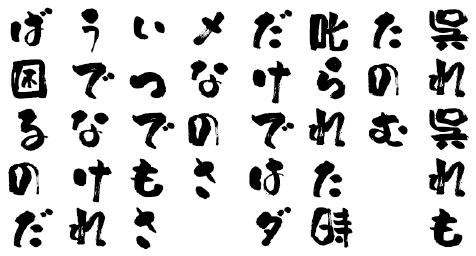 呉れ呉れも
たのむ
叱られた時
だけではダ
メなのさ
いつでもさ
うでなけれ
ば困るのだ